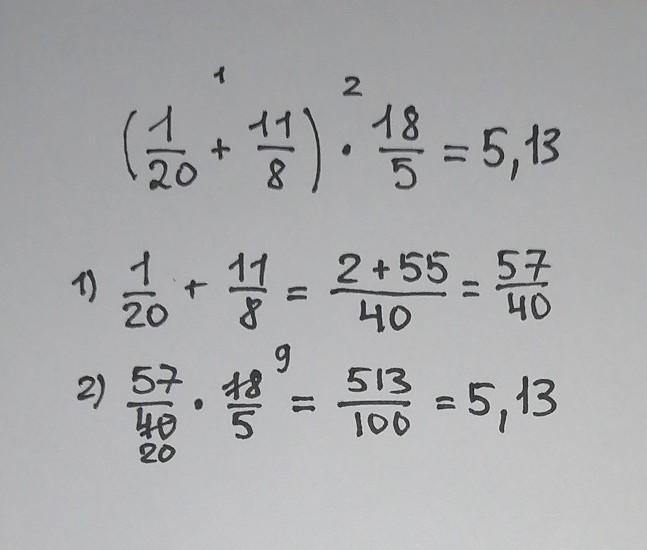 1 2
(1/20 + 11/8) · 18/5 = 5,13
1) 1/20 + 11/8 = 2+55/40 = 57/40
2) 57/40 · 18/5 9 = 513/100 = 5,13
20